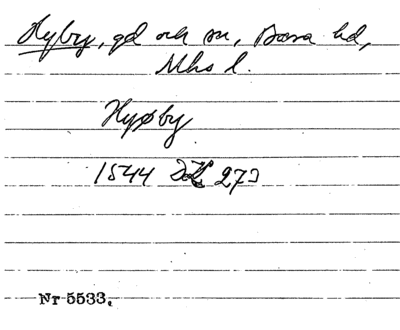 Hyby, gd och sn, Bara hd,
Mhs l.
Hyøby
1544 DK 273
Nr 5533.